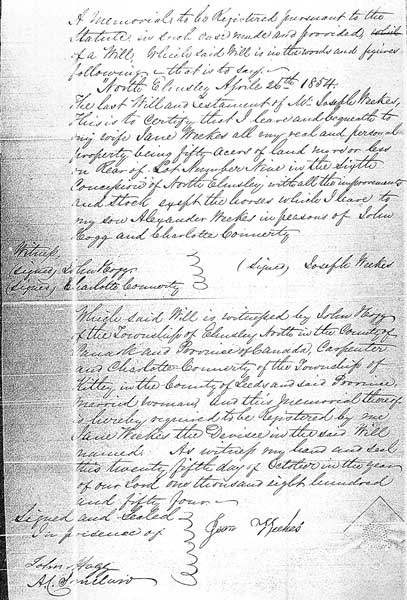 A Memorial to be Registered pursuant to the
Statute in such case made and provided,
of a Will, Which said Will is in the words and figures
following - that is to say -
North Elmsley Aprile 26th 1854.
The last Will and testament of Mr. Joseph Weekes,
This is to Certify that I leave and bequeathe to
my wife Jane Weekes all my real and personal
property being fifty acers of land more or less
in Rear of Lot Number Nine in the Sixth
Concession of North Elmsley with all the improvements
and stock exsept the horses which I leave to
my son Alexander Weekes in persons of John
Hogg and Charlotte Connerty
Witness,
(signed) John Hogg (signed) Joseph Weekes
(signed) Charlotte Connerty
Which said Will is witnessed by John Hogg
of the Township of Elmsley North in the County of
Lanark and Province of Canada, Carpenter
and Charlotte Connerty of the Township of
Kitley in the County of Leeds and said Province,
married woman, and this Memorial thereof
is hereby required to be Registered by me
Jane Weekes the Devisee in the said Will
named. As witness my hand and seal
this twenty fifth day of October in the year
of our Lord one thousand eight hundred
and fifty four -
Signed and Sealed
in presence of Weekes
John Hogg